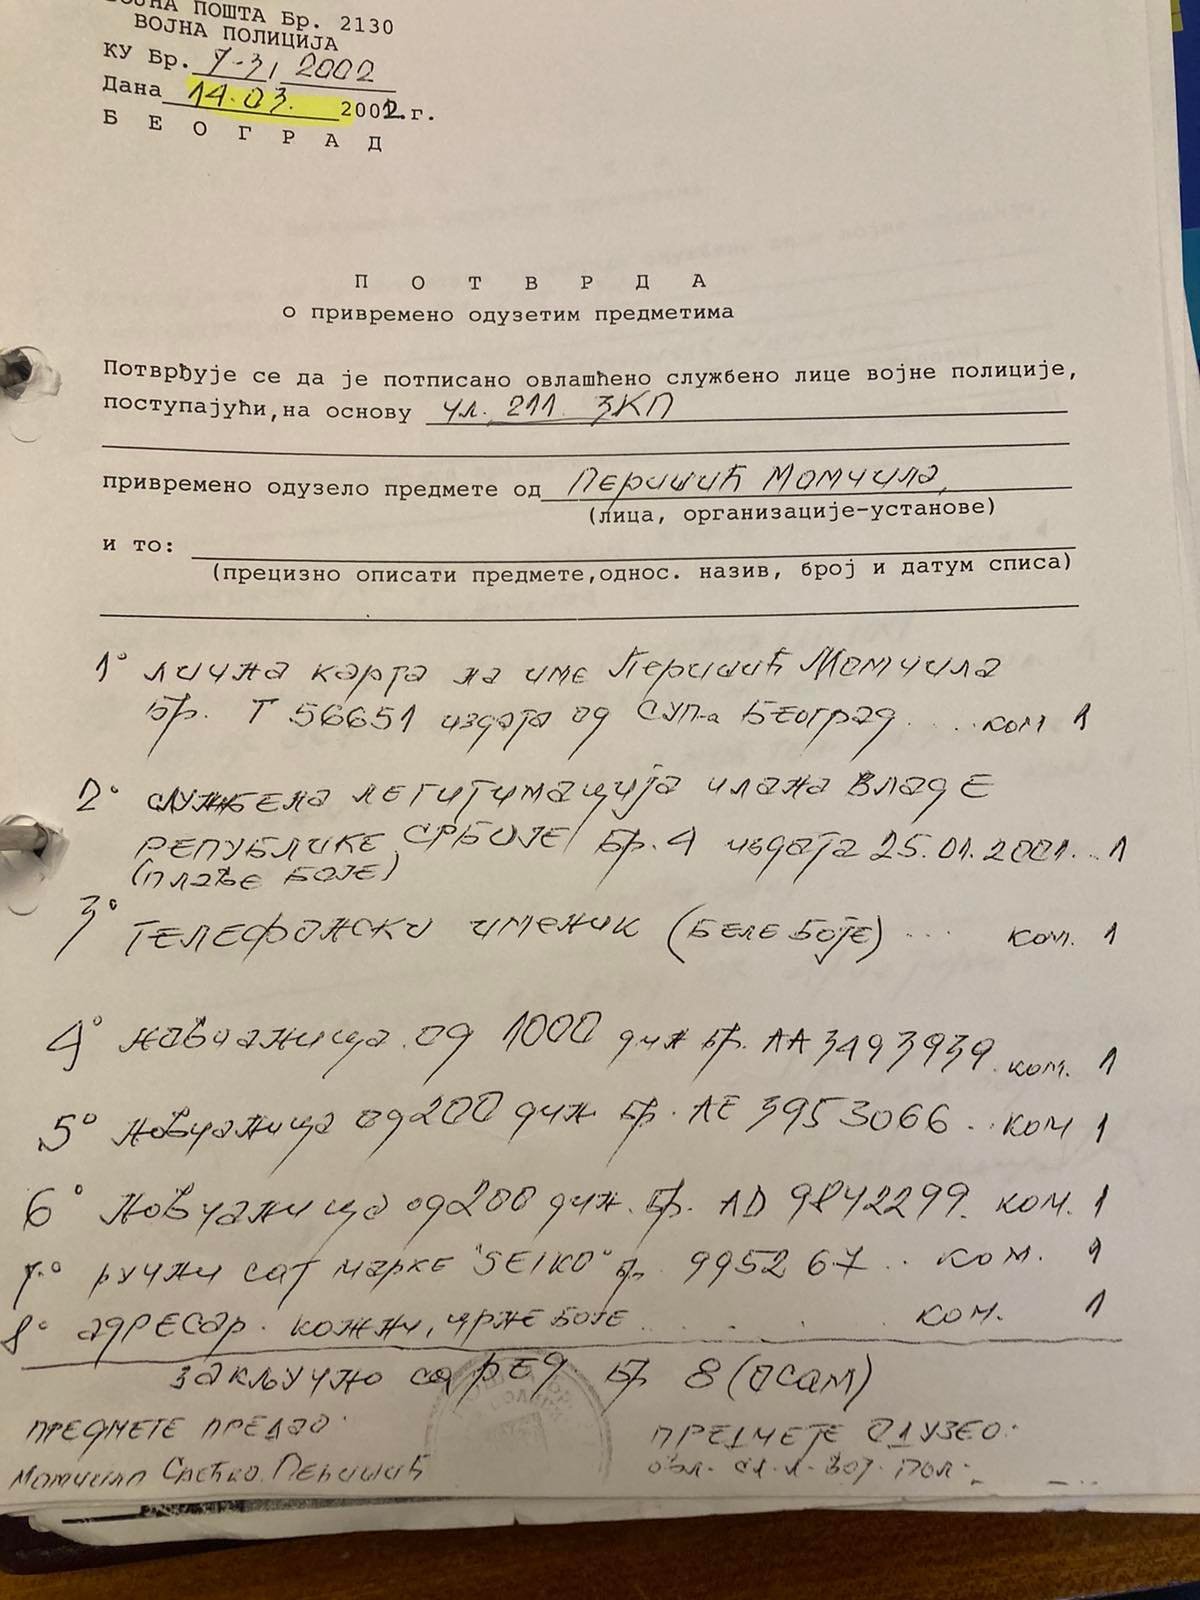 ВОЈНА ПОШТА Бр. 2130
ВОЈНА ПОЛИЦИЈА
КУ Бр. 7-3/2002
Дана 14.03. 2002.г.
Б Е О Г Р А Д
П О Т В Р Д А
о привремено одузетим предметима
Потврђује се да је потписано овлашћено службено лице војне полиције,
поступајући,на основу чл. 211 ЗКП
привремено одузело предмете од Перишић Момчила,
(лица, организације-установе)
и то:
(прецизно описати предмете,однос. назив, број и датум списа)
1° лична карта на име Перишић Момчила
бр. Т 56651 издата од СУП-а Београд .... ком 1
2° службена легитимација члана Владе
Републике Србије бр. 4 издата 25.01.2001. .. 1
(плаве боје)
3° Телефонски именик (беле боје) ... ком. 1
4° новчаница од 1000 дин бр. АА 3493939 ком. 1
5° новчаница од 200 дин. бр. АЕ 3953066 .. ком 1
6° новчаница од 200 дин. бр. AD 9842299. ком. 1
7.° ручни сат марке "SEIKO" бр. 995267 .. ком. 1
8° адресар кожни, црне боје ...... ком. 1
закључно са ред бр 8 (осам)
ПРЕДМЕТЕ ПРЕДАО:
ПРЕДМЕТЕ ОДУЗЕО:
Момчило Срећко Перишић
овл. сл. л. вој. пол.